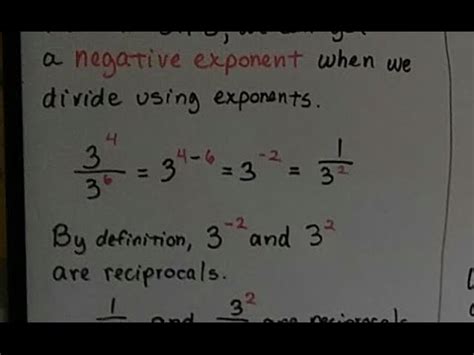 a negative exponent when we
divide using exponents.
3^4/3^6 = 3^(4-6) = 3^-2 = 1/3^2
By definition, 3^-2 and 3^2
are reciprocals.
1 and 3^2 are reciprocals